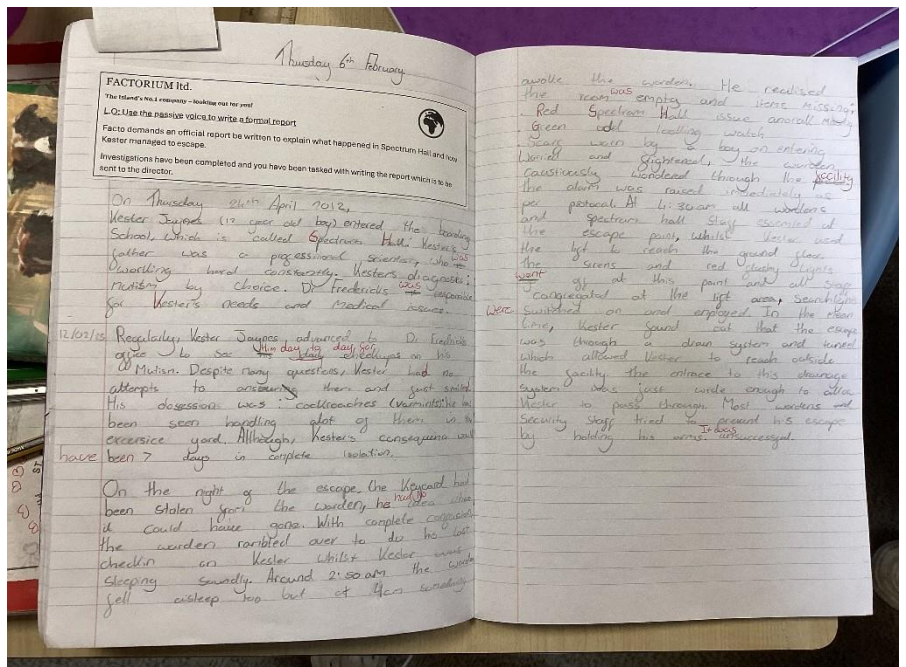 Thursday 6th February
FACTORIUM ltd.
The Island's No.1 company – looking out for you!
L.O: Use the passive voice to write a formal report
Facto demands an official report be written to explain what happened in Spectrum Hall and how
Kester managed to escape.
Investigations have been completed and you have been tasked with writing the report which is to be
sent to the director.
On Thursday 24th April 2012,
Kester Jaynes (12 year old boy) entered the boarding
School, which is called Spectrum Hall. Kester's
father was a professional scientist, who was
working hard constantly. Kesters diagnosis:
mutism by choice. Dr Fredericks was responsible
for Kester's needs and medical issues.
12/02/25 Regarlarly, Kester Jaynes advanced to Dr Fredricks
office to see him day to day for checkups on his
Mutism. Despite many questions, Kester had no
attempts to them and just smiled.
His obsession was: cockroaches (varmints); he had
been seen handling alot of them in the
excersice yard. Although, Kester's consequence would
have been 7 days in complete isolation.
On the night of the escape, the Keycard had
been stolen from the warden, he had no idea where
it could have gone. With complete
the warden rambled over to do his last
checkin on Kester whilst Kester was
sleeping soundly. Around 2:50am the warden
fell asleep too but at 4am something
awoke the warden. He realised
the room was empty and items missing:
. Red Spectrum Hall issue anorak
. Green odd looking watch
. Scarf worn by a boy on entering
Worried and frightened, the warden
caustiously wondered through the facility
the alarm was raised immediately as
per protocal. At 4:30am all wardens
and spectrum hall staff assembled at
the escape point, whilst Kester used
the lift to reach the ground floor.
The sirens and red flashy lights
went off at this point and all staff
congregated at the lift area, Searchlights
were Switched on and employed. In the mean
time, Kester found out that the escape
was through a drain system and tunnel
which allowed Kester to reach outside
the facility. The entrace to this drainage
system was just wide enough to allow
Kester to pass through. Most wardens and
Security staff tried to prevent his escape
by holding his arms. It was unsuccessful.